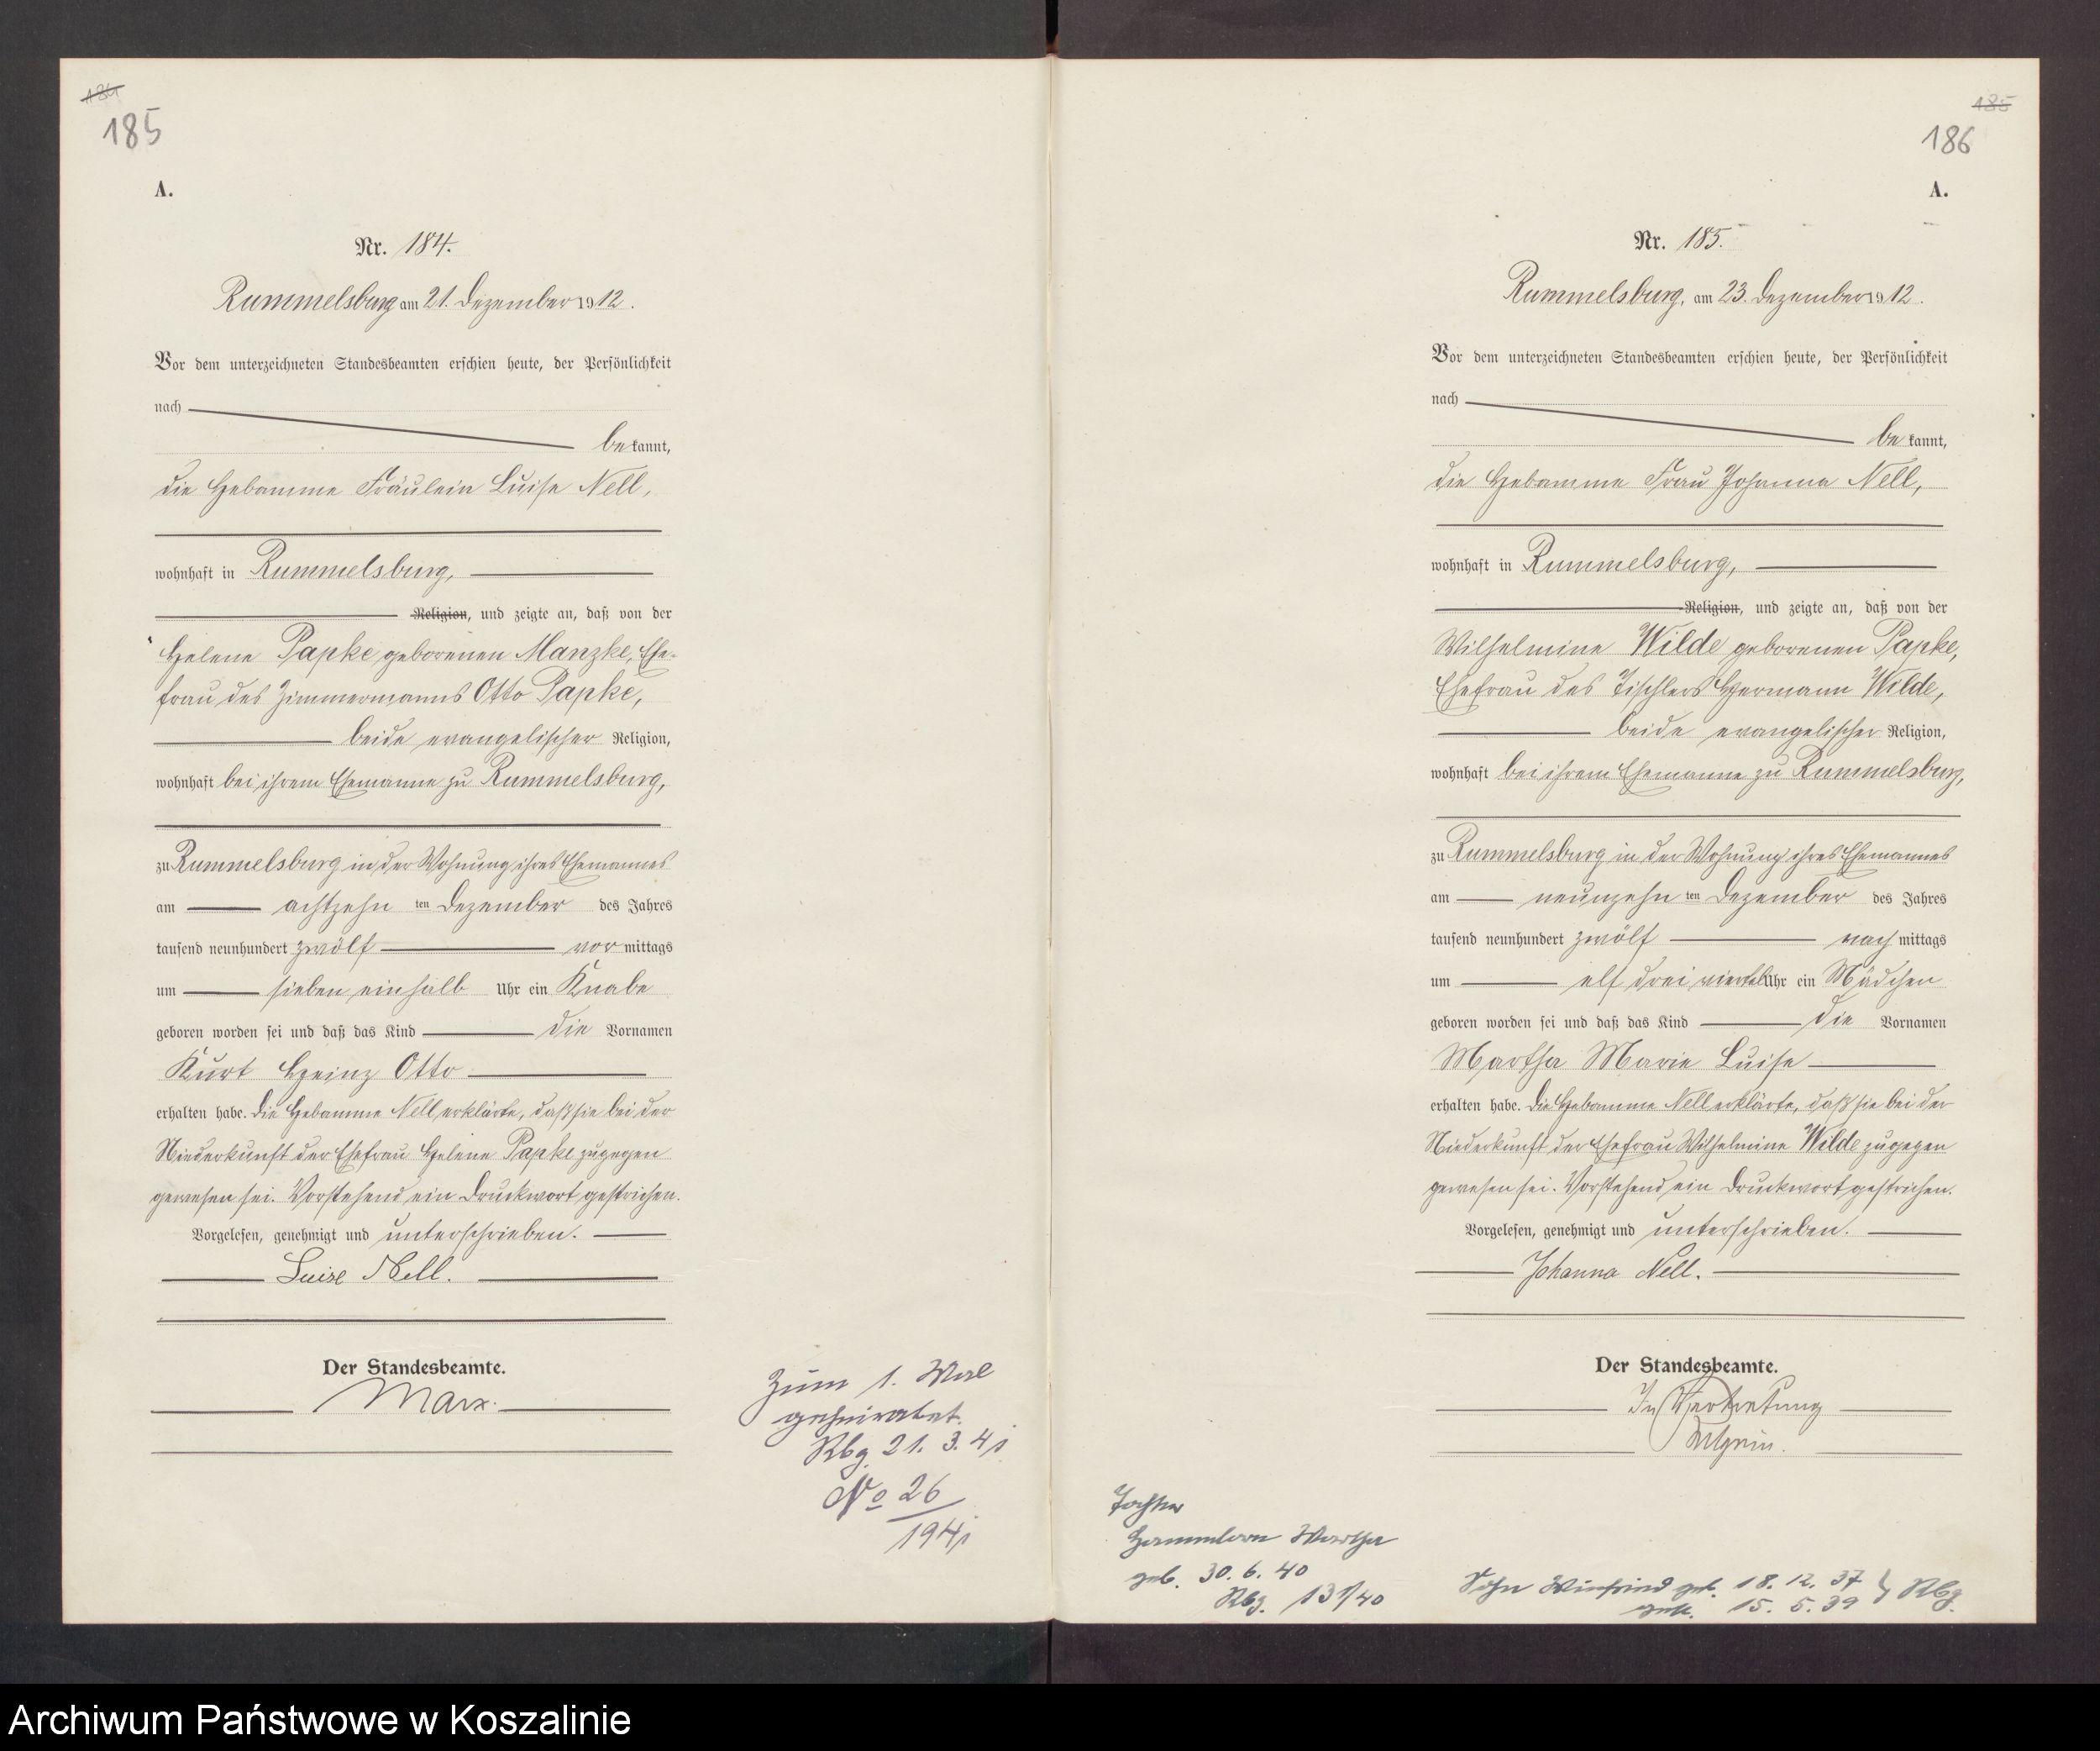 184
185
A.
Nr. 184.
Rummelsburg am 21. Dezember 1912.
Vor dem unterzeichneten Standesbeamten erschien heute, der Persönlichkeit
nach
bekannt,
die Hebamme Fräulein Luise Nell,
wohnhaft in Rummelsburg,
Religion, und zeigte an, daß von der
Helene Papke geborenen Manzke, Ehe-
frau des Zimmermanns Otto Papke,
beide evangelischer Religion,
wohnhaft bei ihrem Ehemanne zu Rummelsburg,
zu Rummelsburg in der Wohnung ihres Ehemannes
am achtzehn ten Dezember des Jahres
tausend neunhundert zwölf vormittags
um sieben einhalb Uhr ein Knabe
geboren worden sei und daß das Kind die Vornamen
Kurt Heinz Otto
erhalten habe. Die Hebamme Nell erklärte, daß sie bei der
Niederkunft der Ehefrau Helene Papke zugegen
gewesen sei. Vorstehend ein Druckwort gestrichen.
Vorgelesen, genehmigt und unterschrieben.
Luise Nell.
Der Standesbeamte.
Marx.
Zum 1. Mal
geheiratet.
Rbg. 21. 3. 41
No 26
1941
185
186
A.
Nr. 185.
Rummelsburg, am 23. Dezember 1912.
Vor dem unterzeichneten Standesbeamten erschien heute, der Persönlichkeit
nach
bekannt,
die Hebamme Frau Johanna Nell,
wohnhaft in Rummelsburg,
Religion, und zeigte an, daß von der
Wilhelmine Wilde geborenen Papke,
Ehefrau des Tischlers Hermann Wilde,
beide evangelischer Religion,
wohnhaft bei ihrem Ehemanne zu Rummelsburg,
zu Rummelsburg in der Wohnung ihres Ehemannes
am neunzehn ten Dezember des Jahres
tausend neunhundert zwölf nachmittags
um elf drei viertel Uhr ein Mädchen
geboren worden sei und daß das Kind die Vornamen
Martha Marie Luise
erhalten habe. Die Hebamme Nell erklärte, daß sie bei der
Niederkunft der Ehefrau Wilhelmine Wilde zugegen
gewesen sei. Vorstehend ein Druckwort gestrichen.
Vorgelesen, genehmigt und unterschrieben.
Johanna Nell.
Der Standesbeamte.
In Vertretung
Tochter
Martha
geb. 30. 6. 40
Rbg. 131/40
Sohn Winfried geb. 18. 12. 37 } Rbg.
15. 5. 39
Archiwum Państwowe w Koszalinie